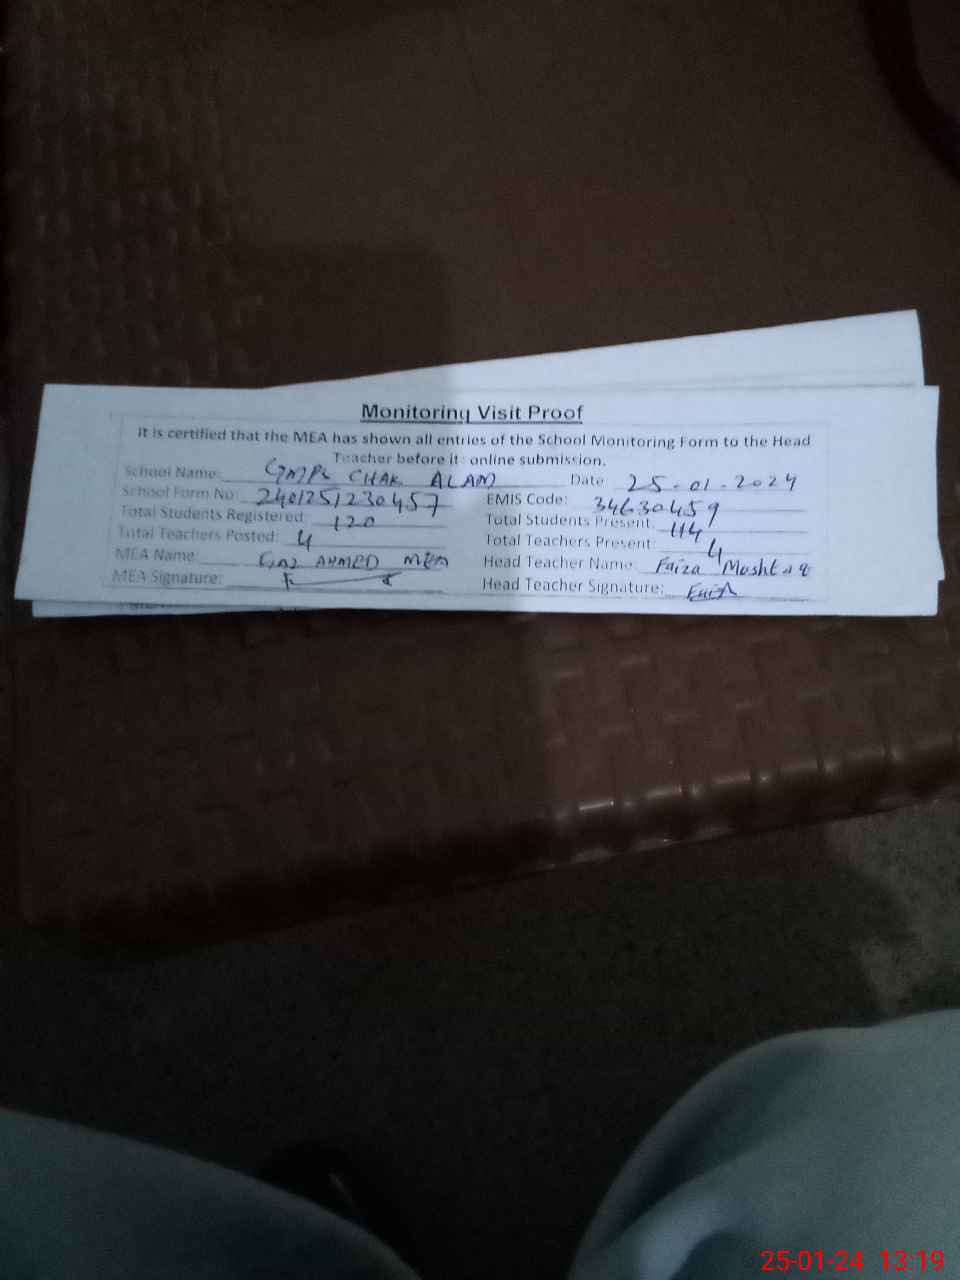 Monitoring Visit Proof
It is certified that the MEA has shown all entries of the School Monitoring Form to the Head
Teacher before it: online submission.
School Name: GMPS CHAK ALAM Date 25-01-2024
School Form No 2401251230457 EMIS Code: 34630459
Total Students Registered: 120 Total Students Present: 114
Total Teachers Posted: 4 Total Teachers Present: 4
MEA Name: AHMED MEA Head Teacher Name: Faiza Mushtaq
MEA Signature: Head Teacher Signature: Faiza
25-01-24 13:19